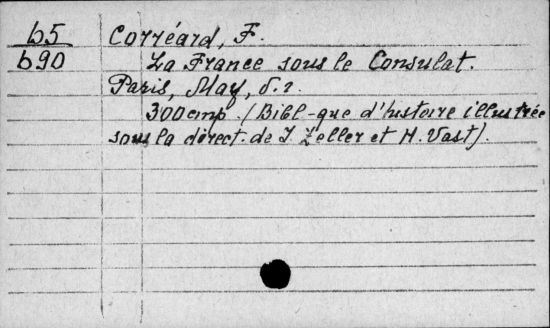 b5 Corréard, F.
b90 La France sous le Consulat.
Paris, May, s.a.
300 стр. (Bibl-que d'histoire illustrée
sous la direct. de J. Zeller et H. Vast).